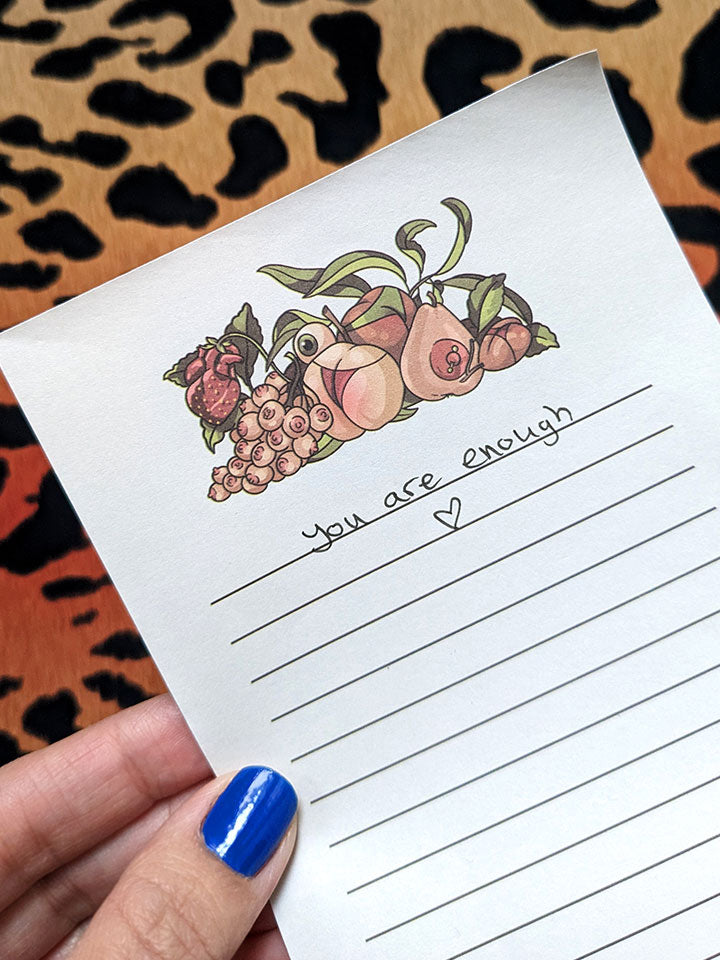 you are enough
♡